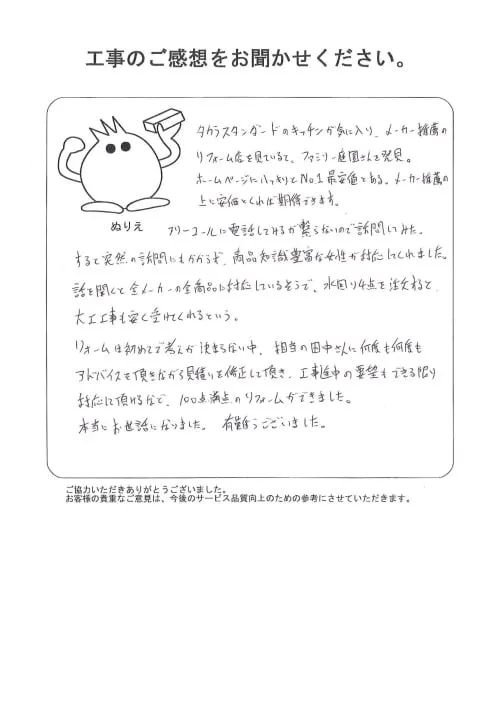 工事のご感想をお聞かせください。
タカラスタンダードのキッチンが気に入り、メーカー推薦の
リフォーム店を見ていると、ファミリー庭園さんを発見。
ホームページにハッキリとNo.1最安値とある。メーカー推薦の
上に安価とくれば期待できます。
ぬりえ
フリーコールに電話してみるが繋らないので訪問してみた。
すると突然の訪問にもかかわらず、商品知識豊富な女性が対応してくれました。
話を聞くと全メーカーの全商品に対応しているそうで、水回り4点を注文すると、
大工工事も安く受けてくれるという。
リフォームは初めてで考えが決まらない中、担当の田中さんに何度も何度も
アドバイスを頂きながら見積りを修正して頂き、工事途中の要望もできる限り
対応して頂けるなど、100点満点のリフォームができました。
本当にお世話になりました。有難うございました。
ご協力いただきありがとうございました。
お客様の貴重なご意見は、今後のサービス品質向上のための参考にさせていただきます。